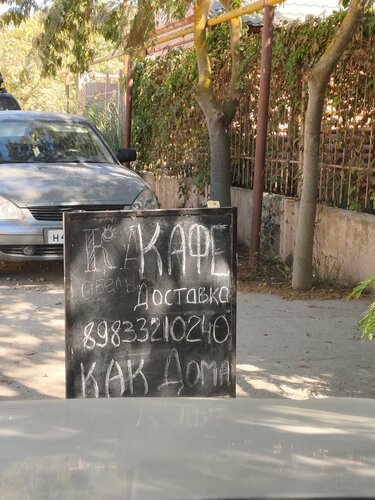 КАФЕ
Доставка
89833210240
КАК Дома
Н